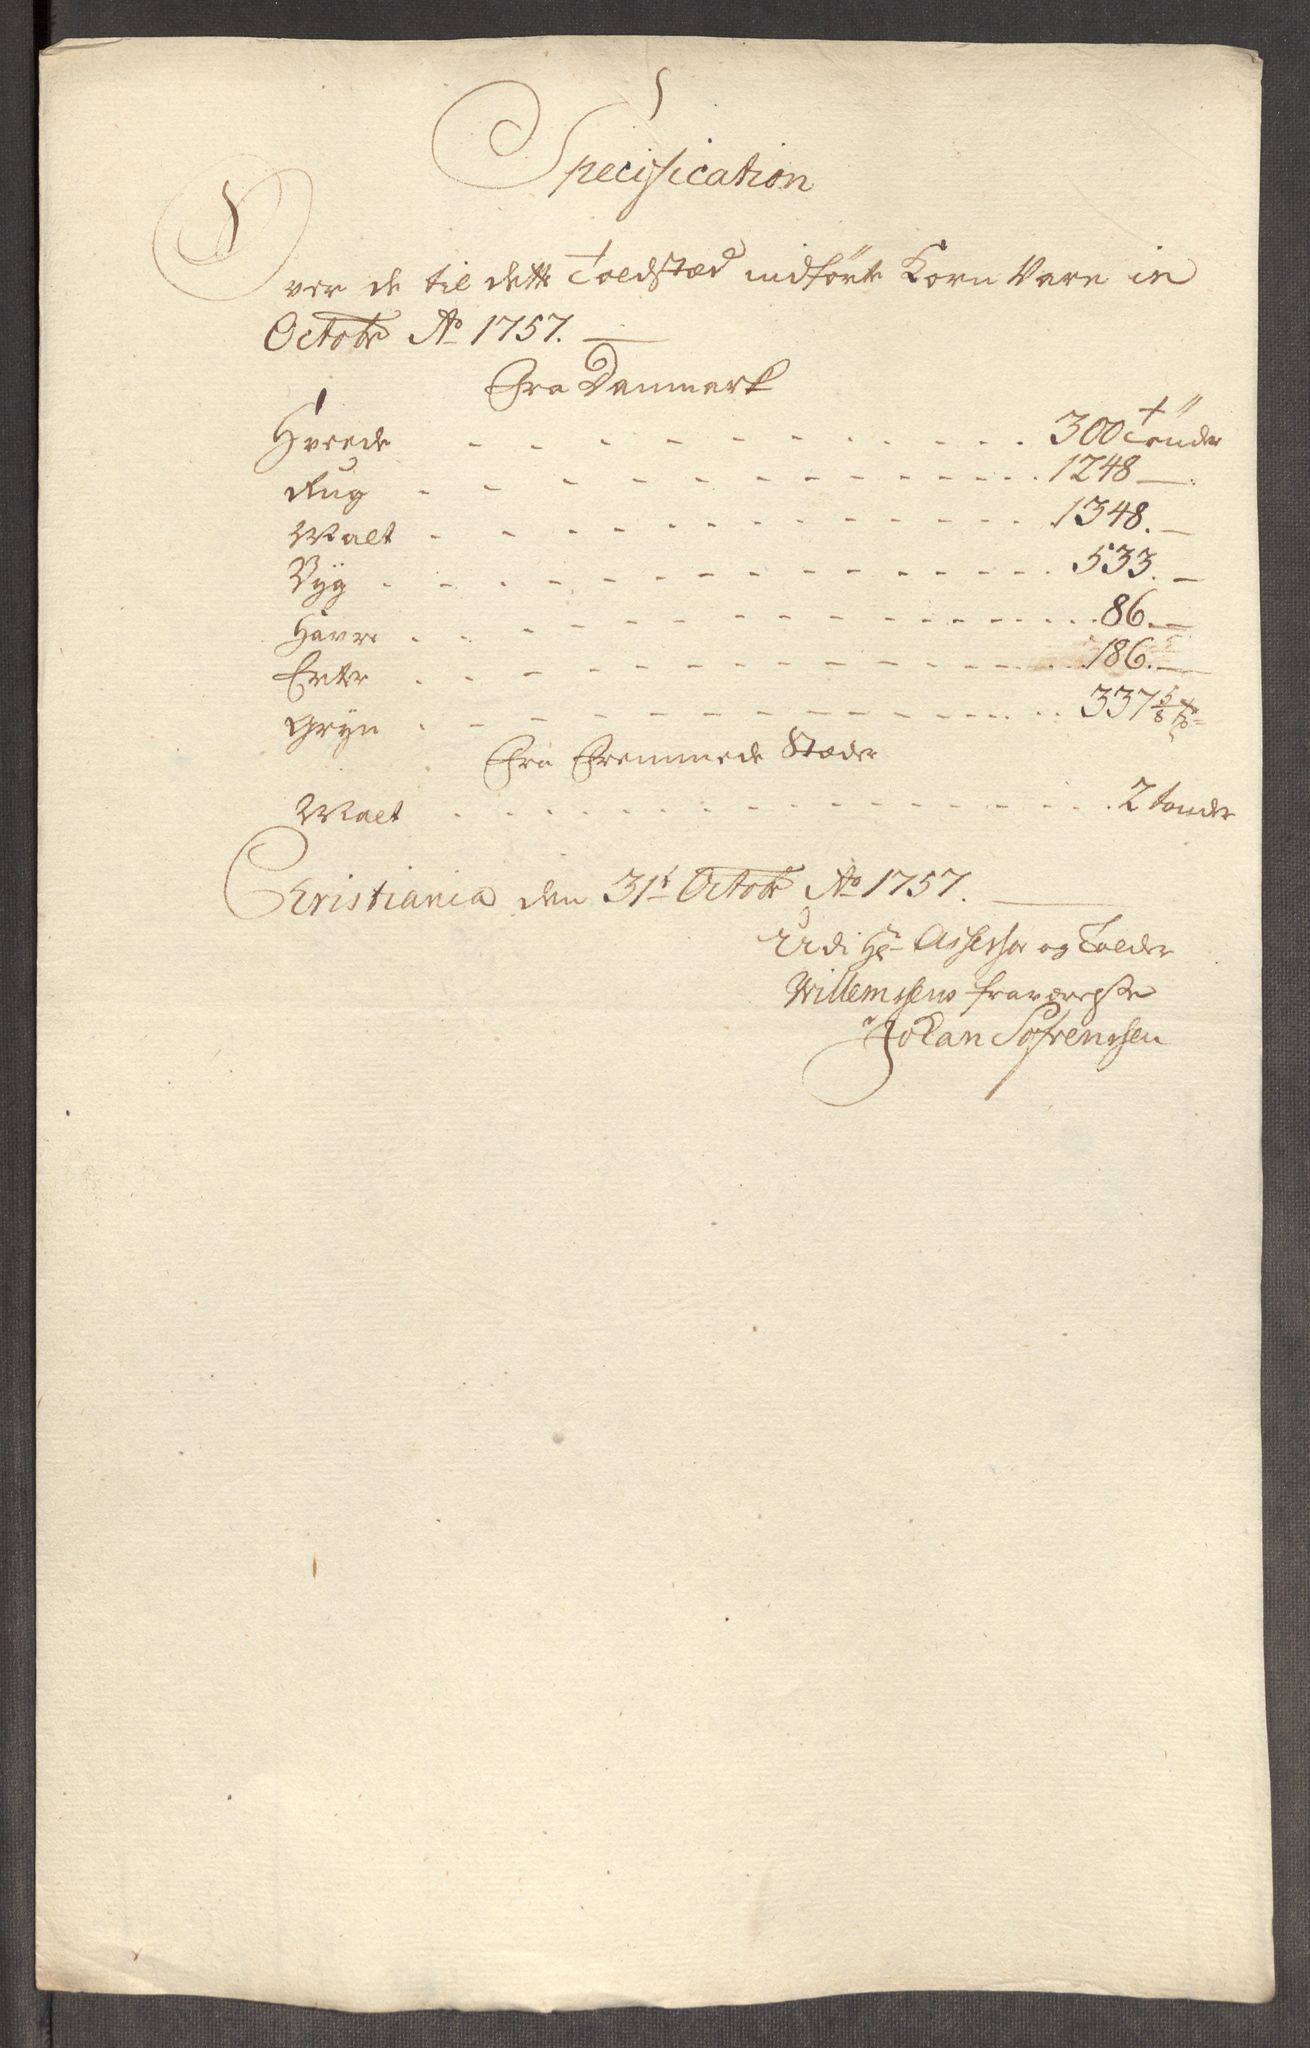 Specification
Over de til dette Toldstæd indførte Korn Vare in
Octobr Ao 1757.
Fra Danmark
Hveede - - - - - - - - - - 300 Tönder
Rug - - - - - - - - - - 1248 —
Malt - - - - - - - - - - 1348. —
Byg - - - - - - - - - - 533. —
Havre - - - - - - - - - - 86. —
Erter - - - - - - - - - - 186. —
Gryn - - - - - - - - - - 337 5/8
Fra Fremmede Stæder
Malt - - - - - - - - - - 2 tönder
Christiania den 31t Octobr Ao 1757.
Udi Hr Assessor og Tolder
Willemssens fraværelse
Johan Søfrenssen